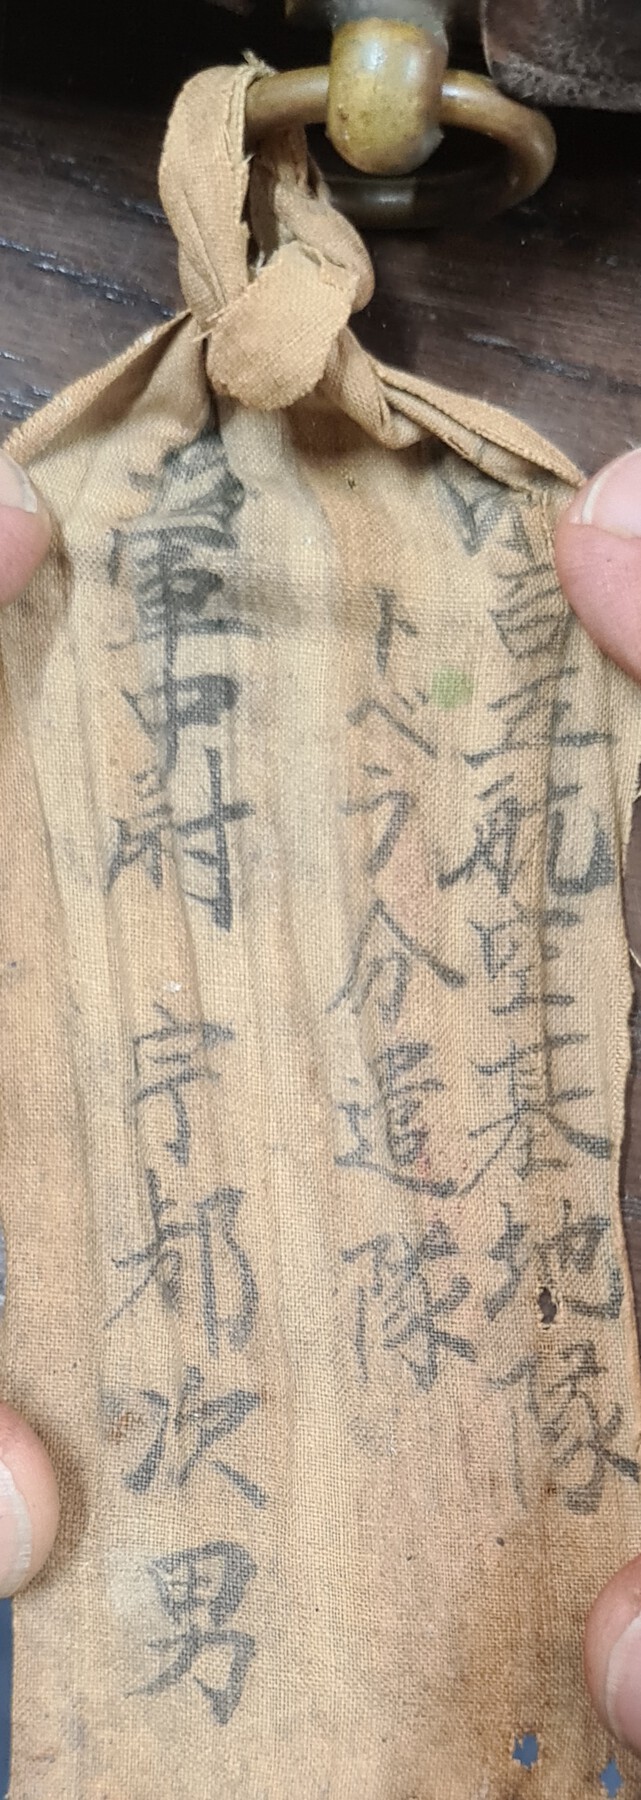 百五航空基地隊
トベラ分遣隊
軍中尉 宇都次男